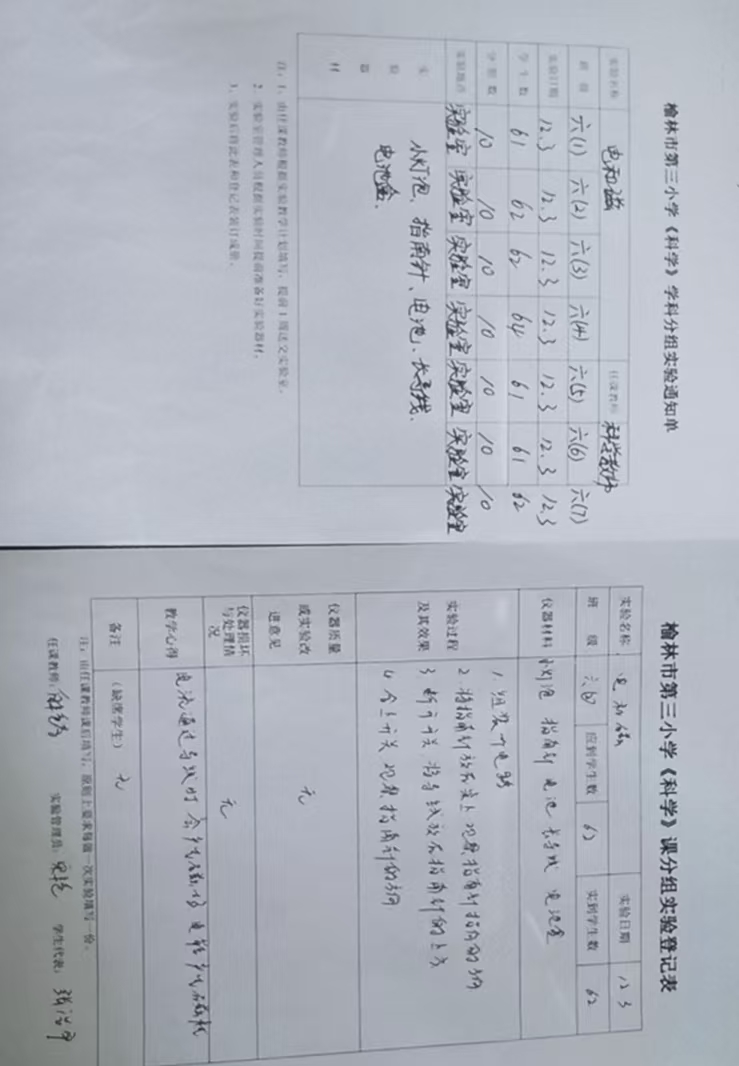 榆林市第三小学《科学》学科分组实验通知单
实验名称 电和磁 任课教师 科学教师
班级 六(1) 六(2) 六(3) 六(4) 六(5) 六(6) 六(7)
实验日期 12.3 12.3 12.3 12.3 12.3 12.3 12.3
学生数 61 62 62 64 61 61 62
分组数 10 10 10 10 10 10 10
实验地点 实验室 实验室 实验室 实验室 实验室 实验室 实验室
实验器材 小灯泡、指南针、电池、长导线、
电池盒.
注:1、由任课教师根据实验教学计划填写,提前1周送交实验室。
2、实验室管理人员根据实验时间提前准备好实验器材。
3、实验后将此表和登记表装订成册。
榆林市第三小学《科学》课分组实验登记表
实验名称 电和磁 实验日期 12 3
班级 应到学生数 62 实到学生数 62
仪器材料 小灯泡 指南针 电池 长导线 电池盒
实验过程及其效果
1. 组装个电路
2. 将指南针放在桌上 观察指南针指向的方向
3. 断开开关 将导线放在指南针的上方
4. 合上开关 观察指南针的方向
仪器质量或实验改进意见 无
仪器损坏与处理情况 无
教学心得 电流通过导线时 会产生磁场 电能产生磁性
备注 (缺席学生) 无
注:由任课教师课后填写,原则上要求每做一次实验填写一份。
任课教师: 实验管理员: 学生代表: